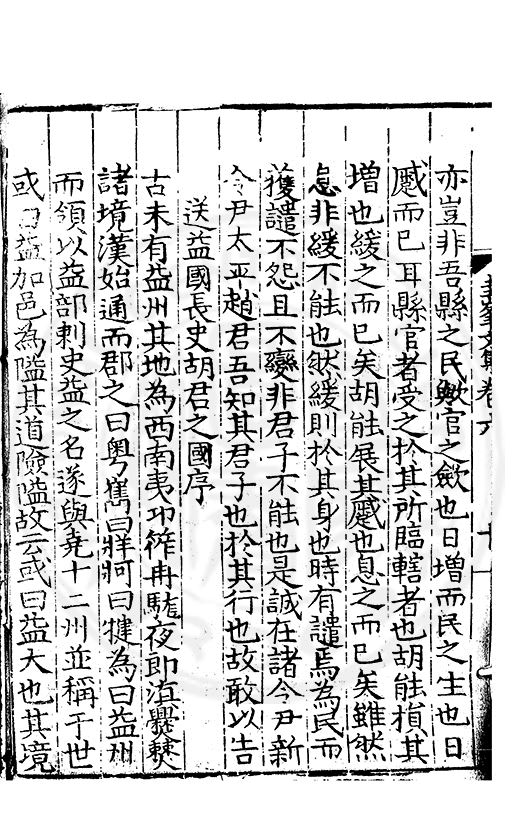 亦豈非吾縣之民歟官之斂也日增而民之生也日
蹙而已耳縣官者受之於其所臨轄者也胡能損其
增也緩之而已矣胡能展其蹙也息之而已矣雖然
息非緩不能也然緩則於其身也時有譴焉為民而
獲譴不怨且不變非君子不能也是誠在諸令尹新
令尹太平趙君吾知其君子也於其行也故敢以告
送益國長史胡君之國序
古未有益州其地為西南夷卭筰冉駹夜郎滇㸑僰
諸境漢始通而郡之曰粤嶲曰牂牁曰犍為曰益州
而領以益部刺史益之名遂與堯十二州並稱于世
或曰益加邑為隘其道險隘故云或曰益大也其境
峯文集卷六
十